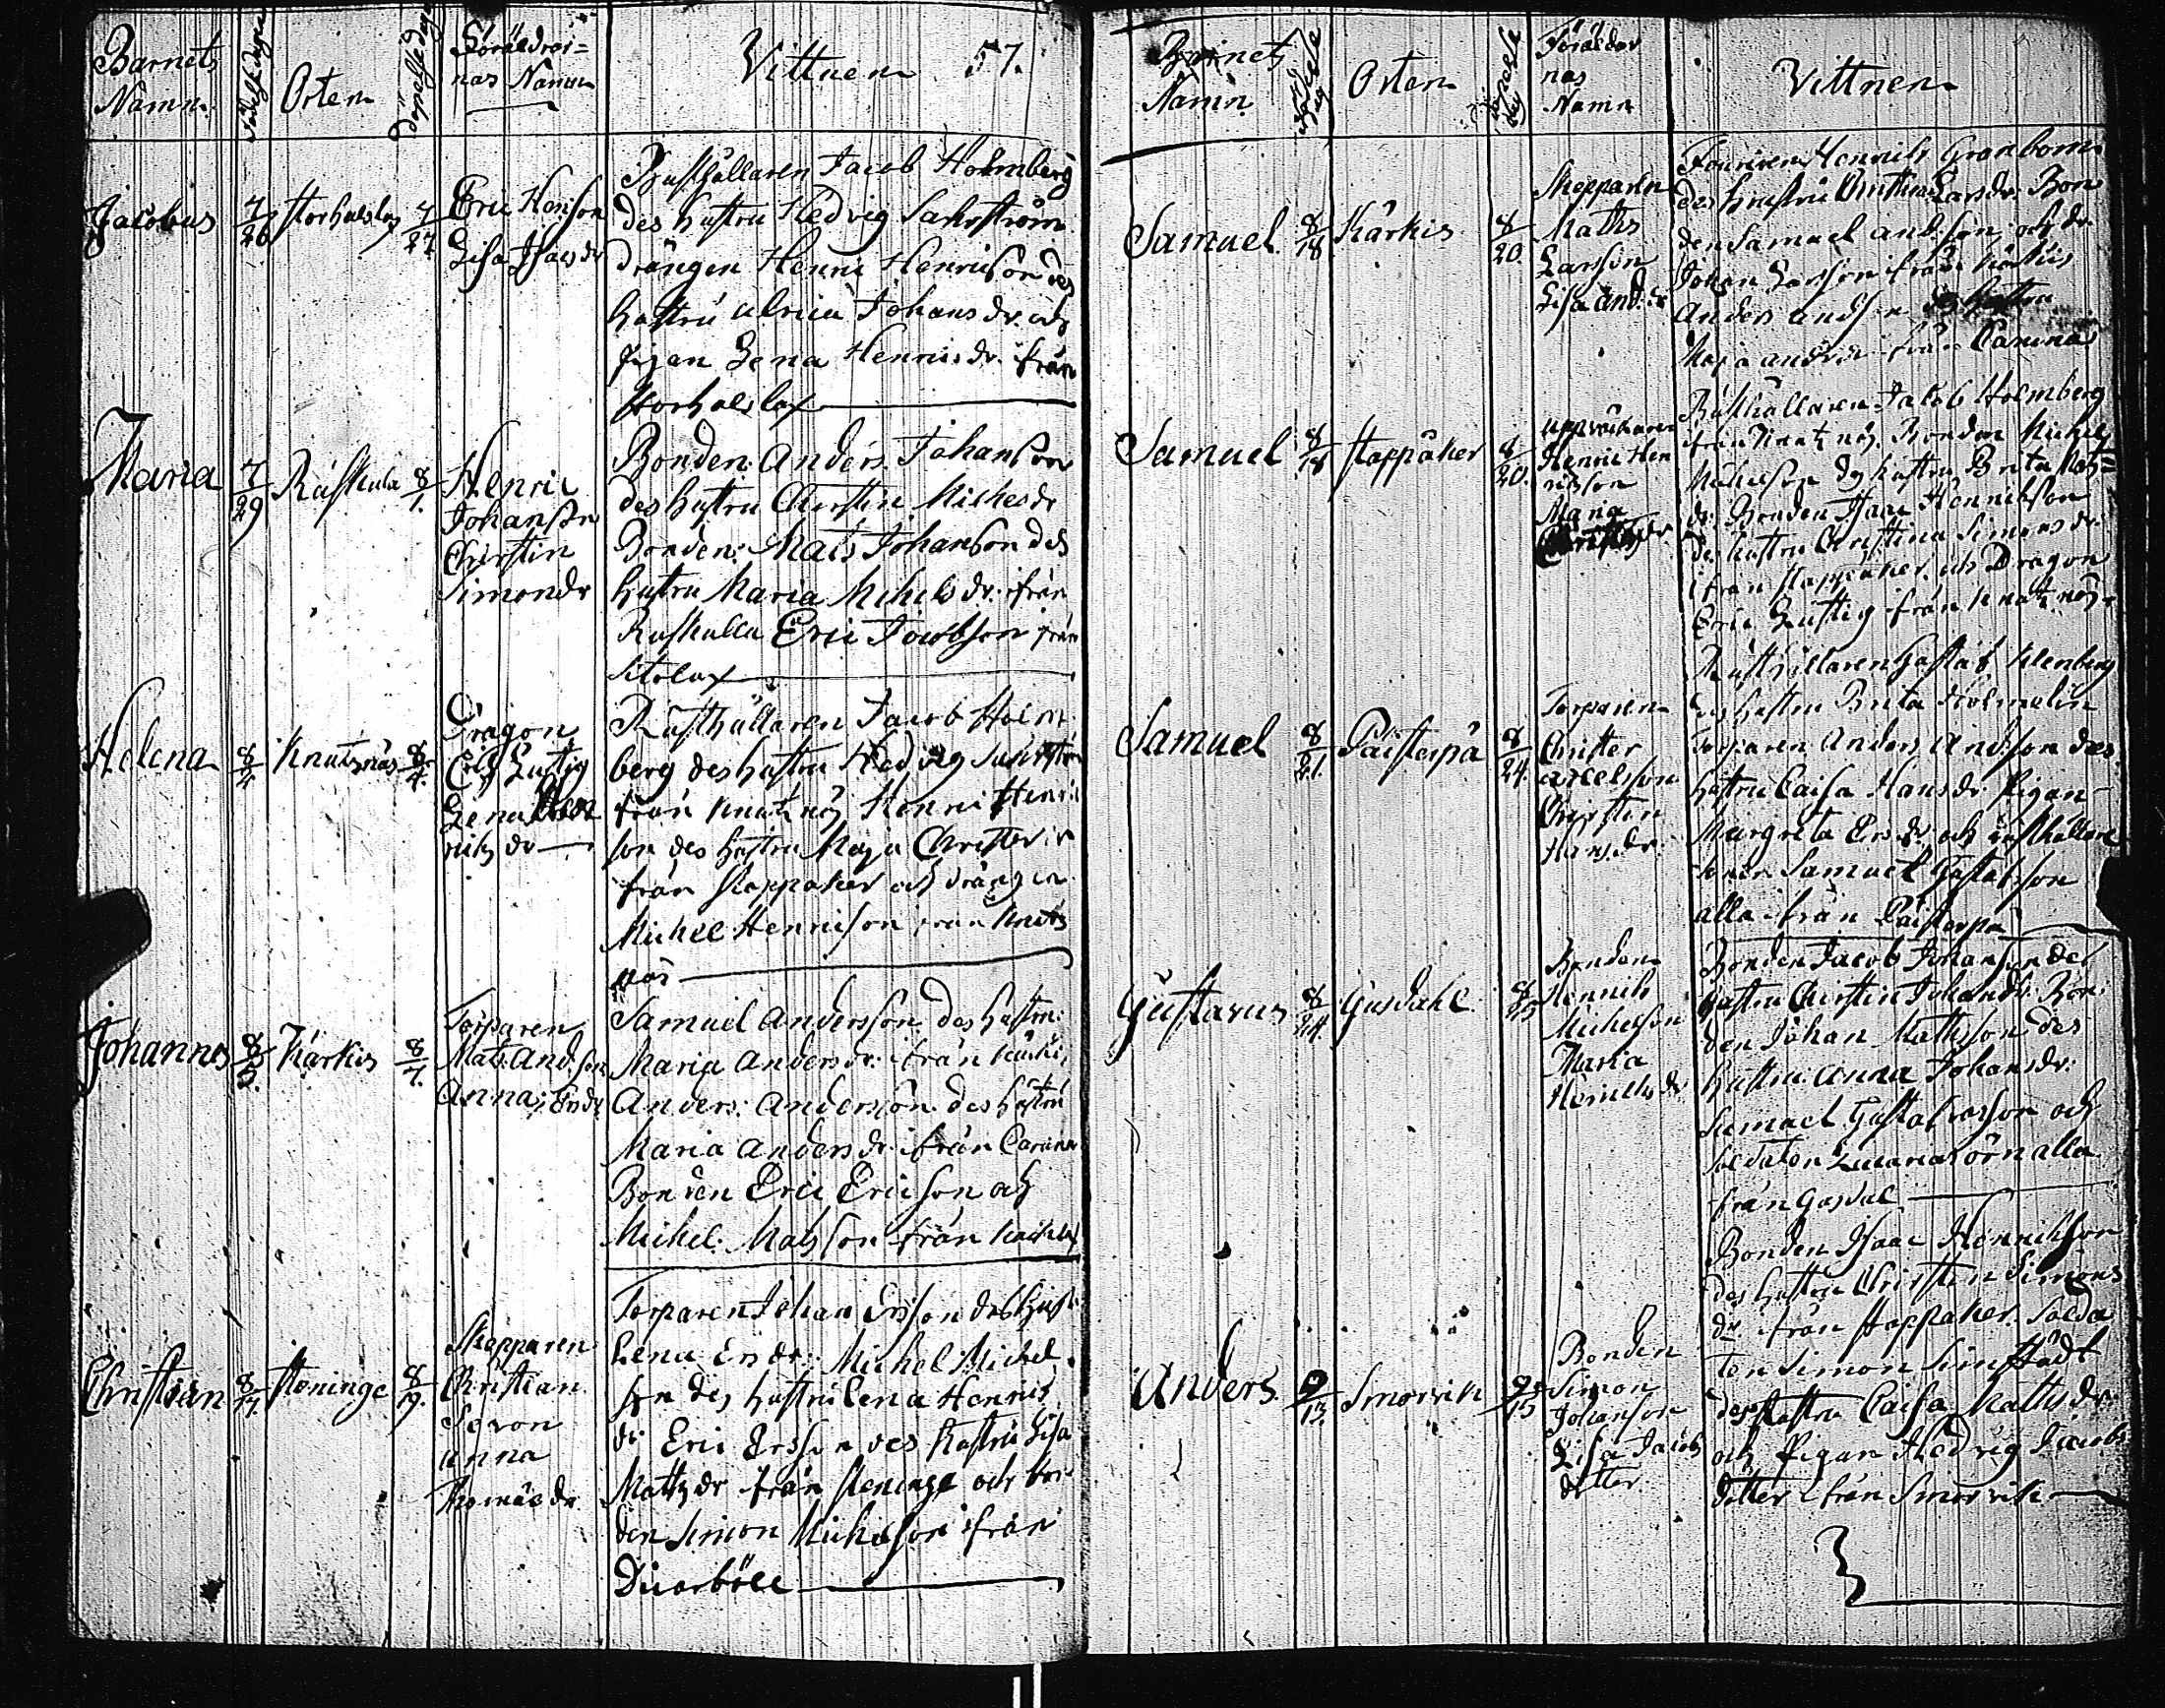 Barnets
Namn
Orten
Föräldrar=
nas Namn
Vittnen 57.
Jacobus
7/26
7/27
Eric Henson
Lisa Isacs dr
Rusthållaren Jacob Holmberg
des hustru Hedvig
drängen Henric Henricson des
hustru Ulrica Johans dr. och
pigan Lena Henrics dr. ifrån
Storhalslax
Maria
7/29
Råskula
8/1.
Henric
Johanson
Chirstin
Simondr
Bonden Anders Johanson
des hustru Chirstin Michelsdr
Bonden Mats Johanson des
hustru Maria Michelsdr. ifrån
Råskulla Eric Jacobson från
Sitolax
Helena
Knutsnäs
8/4.
Dragon
Eric Lustig
Lena Hen
richs dr
Rusthållaren Jacob Holm
berg des hustru Hedvig
från Knutsnäs Henric Henric
son des hustru Maja Christer dr
från Koppaker och drängen
Michel Henricson från Knuts
näs
Johannes
Kärkis
8/7.
Torparen
Mats And.son
Anna Ersdr
Samuel Andersson des hustru
Maria Anders dr. ifrån Kärkis
Anders Andersson des hustru
Maria Anders dr. ifrån
Bonden Eric Ericson och
Michel Matsson från
Christian
8/17.
Steninge
8/19.
Skepparen
Christian
Anna
Thomas dr
Torparen Johan Ersson des hust.
Lena Ersdr. Michel Michel
son des hustru Lena Henrics
dr Eric Ersson des hustru Lisa
Matts dr från Steninge och bon
den Simon Michelson ifrån
Barnets
Namn
Orten
Föräldar
nas
Namn
Vittnen
Samuel
8/18.
Kärkis
8/20.
Skepparen
Maths
Larsson
Lisa And. dr
Henrik Granbom
des hustru Christina Larsdr. Bon
den Samuel And.son och dr.
Johan Larsson från Kärkis
Anders Andson des hustru
Maja Andrs dr från
Samuel
8/18
Koppåker
8/20.
Henric Hen
ricsson
Maria
Rusthållaren Jacob Holmberg
från Knutsnäs. Bonden Michel
Michelson des hustru Brita Mats
dr. Bonden Isaac Henrikson
des hustru Christina Simons dr.
ifrån Koppaker och Dragon
Eric Lustig från Knutsnäs
Samuel
8/21.
Påisterpå
8/24.
Torparen
Christer
Axelsson
Chirstin
Hans dr.
Rusthållaren Gustaf
des hustru Brita Holmelin
Torparen Anders And.son des
hustru Caisa Hans dr. Pigan
Margreta Ers dr. och rusthållare
sonen Samuel Gustafson
alla från Påisterpå
Gustavus
8/24.
Gusdahl
8/25
Bonden
Hennrik
Michelson
Maria
Henricks dr
Bonden Jacob Johanson des
hustru Chirstin Johansdr. Bon
den Johan Mathsson des
hustru Anna Johansdr.
Samuel Gustafsson och
soldaten Zacarias Örn alla
från Gasdal
Anders
9/13.
Smorvik
9/15
Bonden
Simon
Johanson
Lisa Jacobs
dotter
Bonden Isaac Henrikson
des hustru Chirstin Simons
dr. från Koppaker. Solda
ten Simon
des hustru Caisa Matts dr.
och Pigan Hedvig Jacobs
dotter från Smorvik